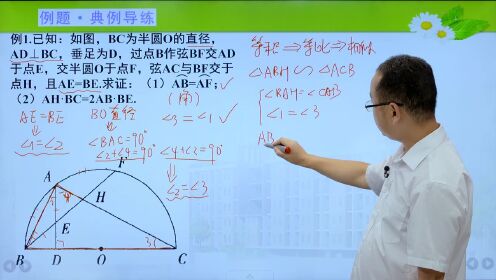 例题·典例导练
例1.已知：如图，BC为半圆O的直径，
AD⊥BC，垂足为D，过点B作弦BF交AD
于点E，交半圆O于点F，弦AC与BF交于
点H，且AE=BE.求证：（1）AB=AF；
（2）AH·BC=2AB·BE.
AE=BE
⇓
∠1=∠2
直径
∠BAC=90°
∠2+∠4=90°
∠3=∠1 ✓
∠4+∠3=90°
⇓
∠2=∠3
⇒ ⇒
△ABH ∽ △ACB
∠BAH=∠CAB
∠1=∠3
AB
A
F
H
E
B
D
O
C